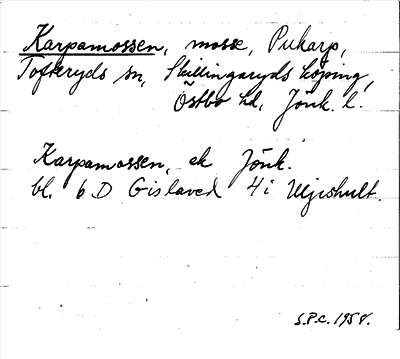 Karpamossen, mosse, Pukarp,
Tofteryds sn, Skillingaryds köping,
Östbo hd, Jönk. l.
Karpamossen, ek Jönk.
bl. 6 D Gislaved 4 i Uljeshult.
S.P.C. 1958.